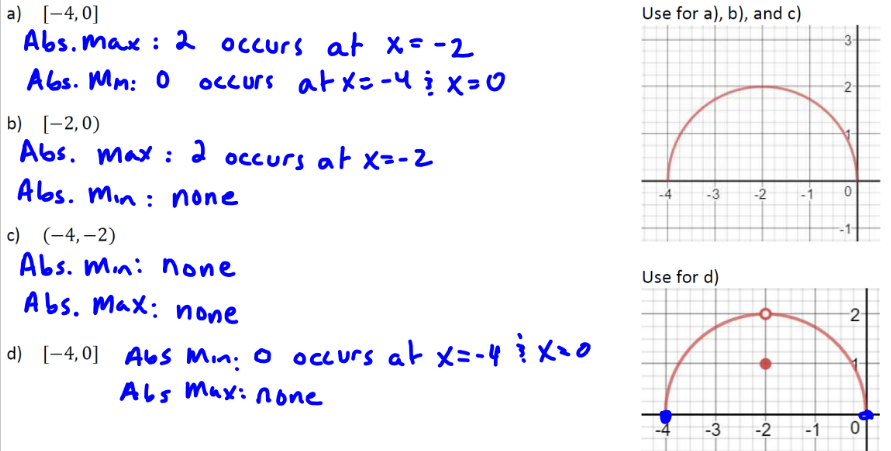 a) [−4,0]
Abs. max : 2 occurs at x = -2
Abs. Min: 0 occurs at x = -4 & x=0
b) [−2,0)
Abs. max : 2 occurs at x=-2
Abs. Min : none
c) (−4,−2)
Abs. Min: none
Abs. Max: none
d) [−4,0] Abs Min: 0 occurs at x=-4 & x=0
Abs Max: none
Use for a), b), and c)
3
2
1
-4 -3 -2 -1 0
-1
Use for d)
2
1
-4 -3 -2 -1 0